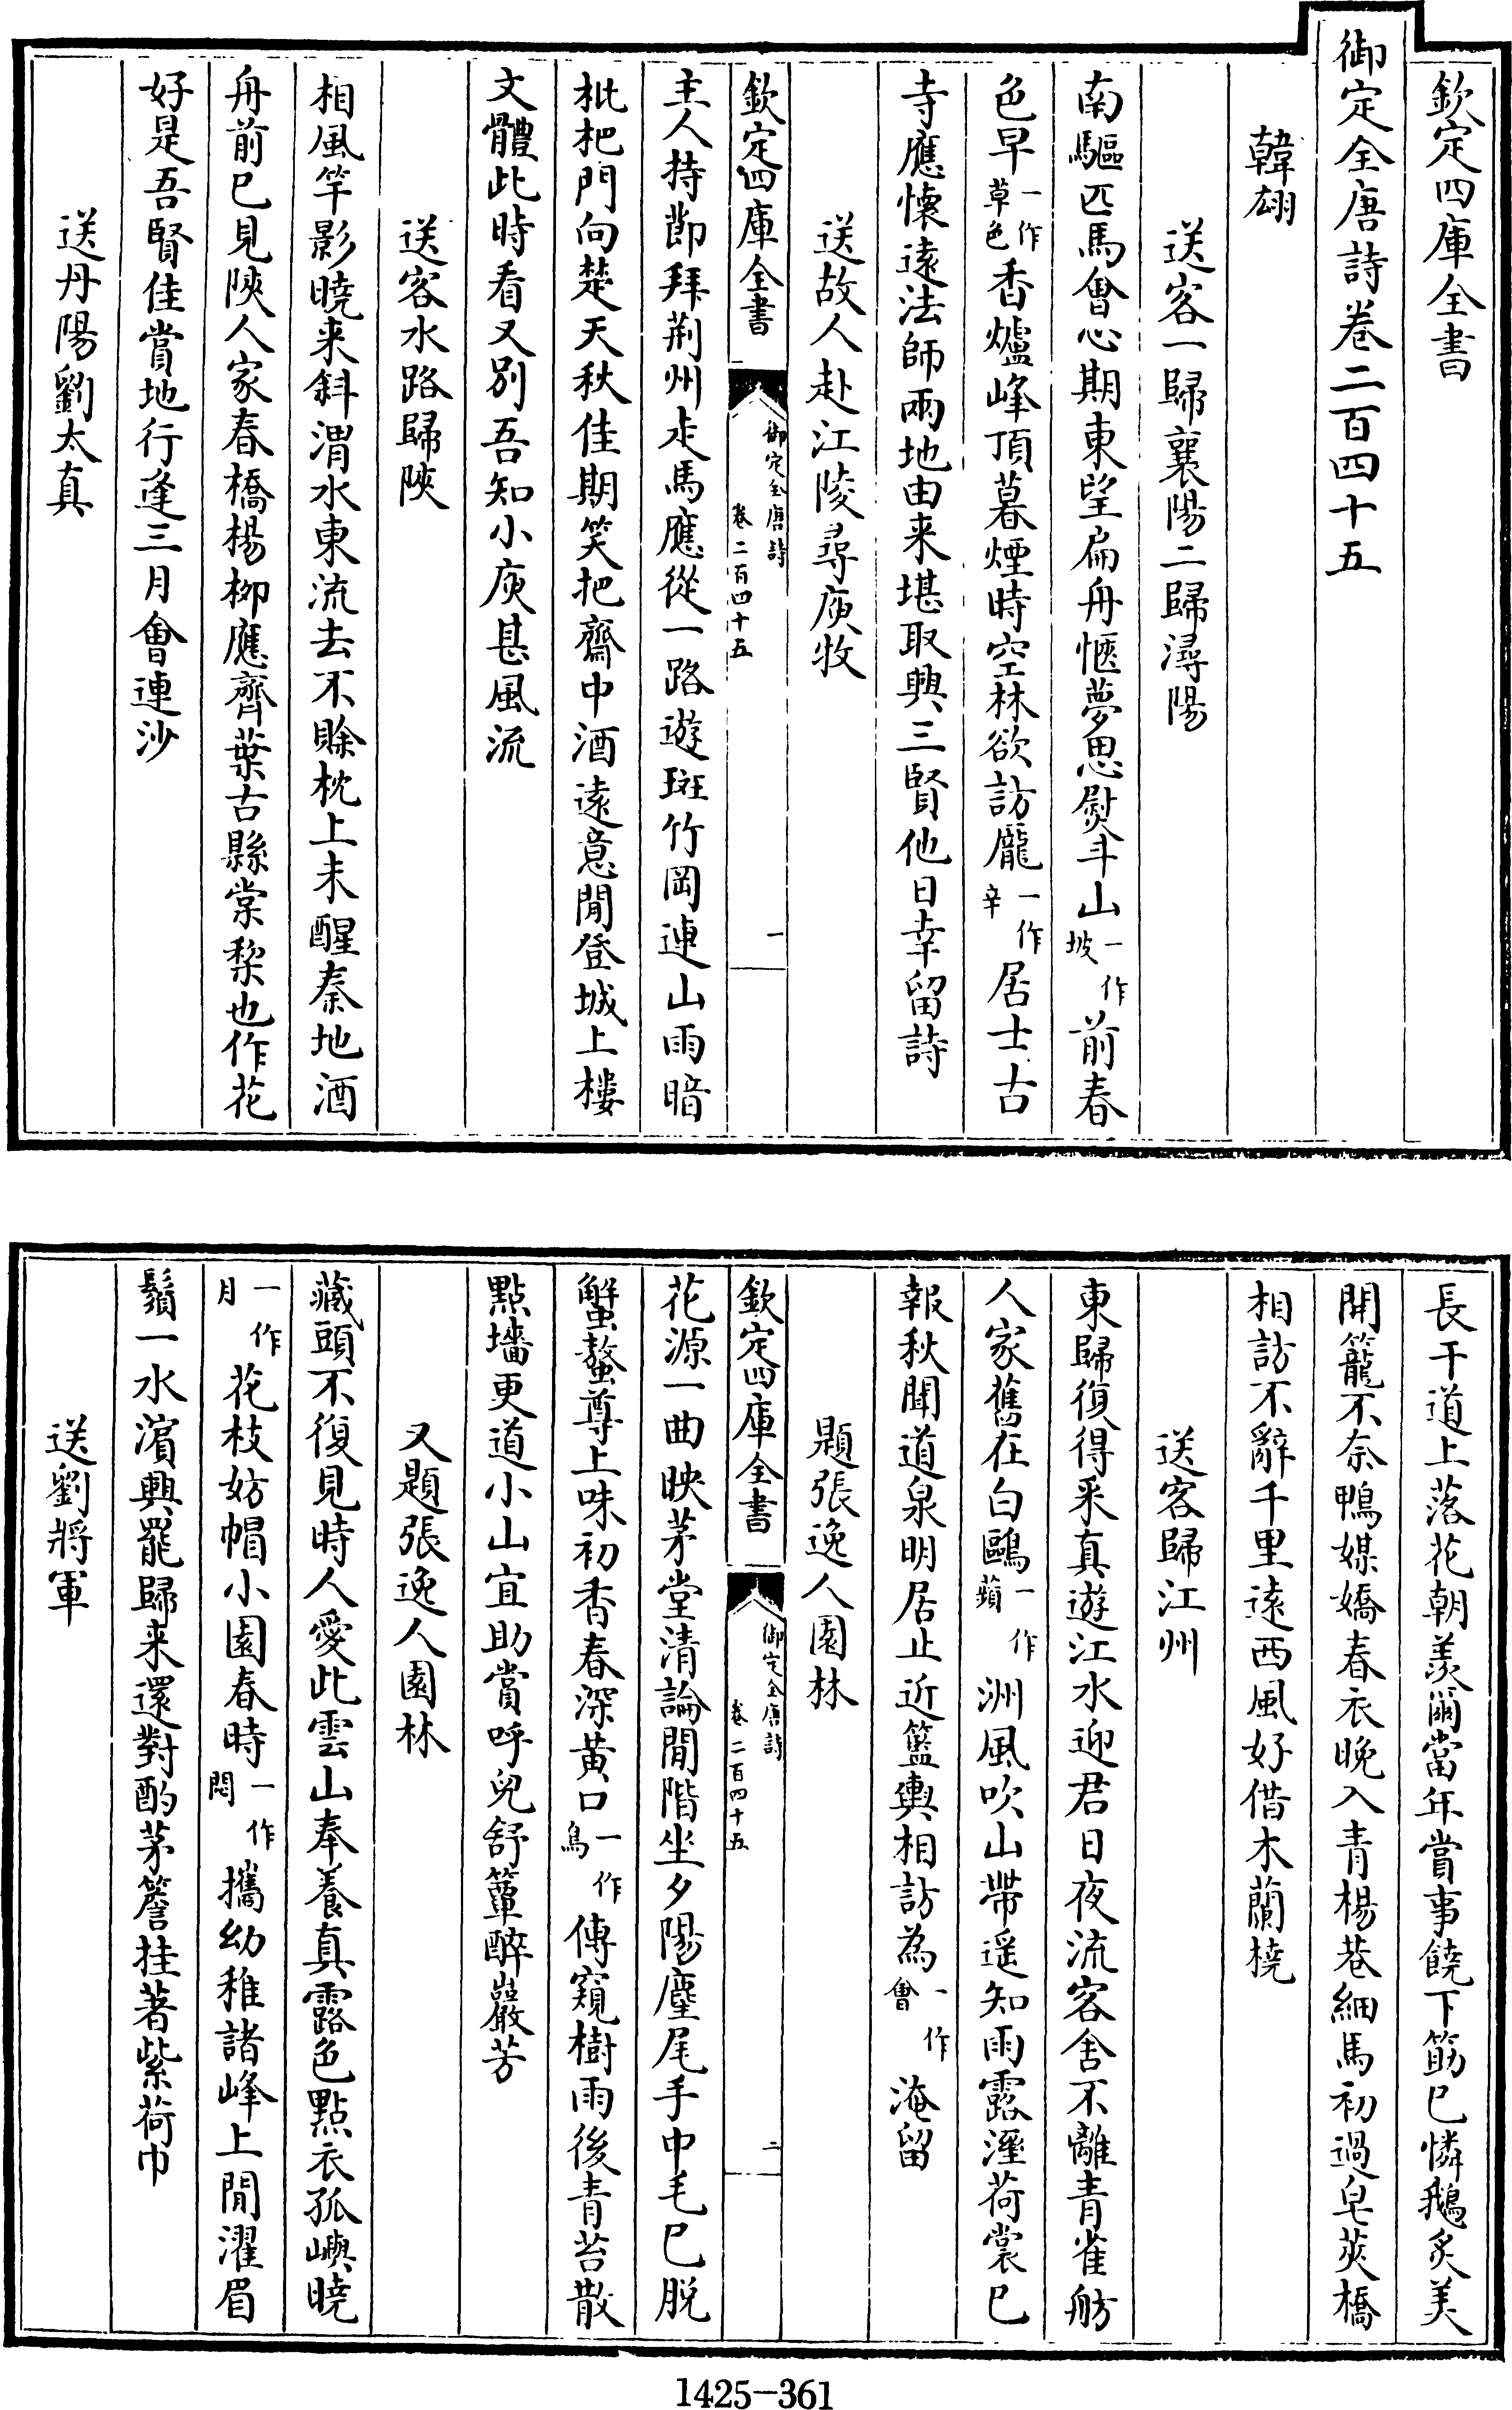 欽定四庫全書
御定全唐詩卷二百四十五
韓翃
送客一歸襄陽二歸潯陽
南驅匹馬會心期東望扁舟愜夢思熨斗山一作坡前春
色早一作草色香爐峰頂暮煙時空林欲訪龐一作辛居士古
寺應懷遠法師兩地由来堪取興三賢他日幸留詩
送故人赴江陵尋庾牧
欽定四庫全書 御定全唐詩 卷二百四十五 一
主人持節拜荆州走馬應從一路遊斑竹岡連山雨暗
枇杷門向楚天秋佳期笑把齋中酒遠意閒登城上樓
文體此時看又別吾知小庾甚風流
送客水路歸陜
相風竿影曉来斜渭水東流去不賖枕上未醒秦地酒
舟前已見陜人家春橋楊柳應齊葉古縣棠棃也作花
好是吾賢佳賞地行逢三月會連沙
送丹陽劉太真
長干道上落花朝羨爾當年賞事饒下筯已憐鵝炙美
開籠不奈鴨媒嬌春衣晚入青楊巷細馬初過皂莢橋
相訪不辭千里遠西風好借木蘭橈
送客歸江州
東歸復得采真遊江水迎君日夜流客舍不離青雀舫
人家舊在白鷗一作蘋洲風吹山帶遥知雨露溼荷裳已
報秋聞道泉明居止近籃輿相訪為一作會淹留
題張逸人園林
欽定四庫全書 御定全唐詩 卷二百四十五 二
花源一曲映茅堂清論閒階坐夕陽麈尾手中毛已脱
蟹螯尊上味初香春深黄口一作鳥傳窺樹雨後青苔散
點墻更道小山宜助賞呼兒舒簟醉巖芳
又題張逸人園林
藏頭不復見時人愛此雲山奉養真露色點衣孤嶼曉
一作月花枝妨帽小園春時一作閟攜幼稚諸峰上閒濯眉
鬚一水濵興罷歸来還對酌茅簷挂著紫荷巾
送劉將軍
1425—361